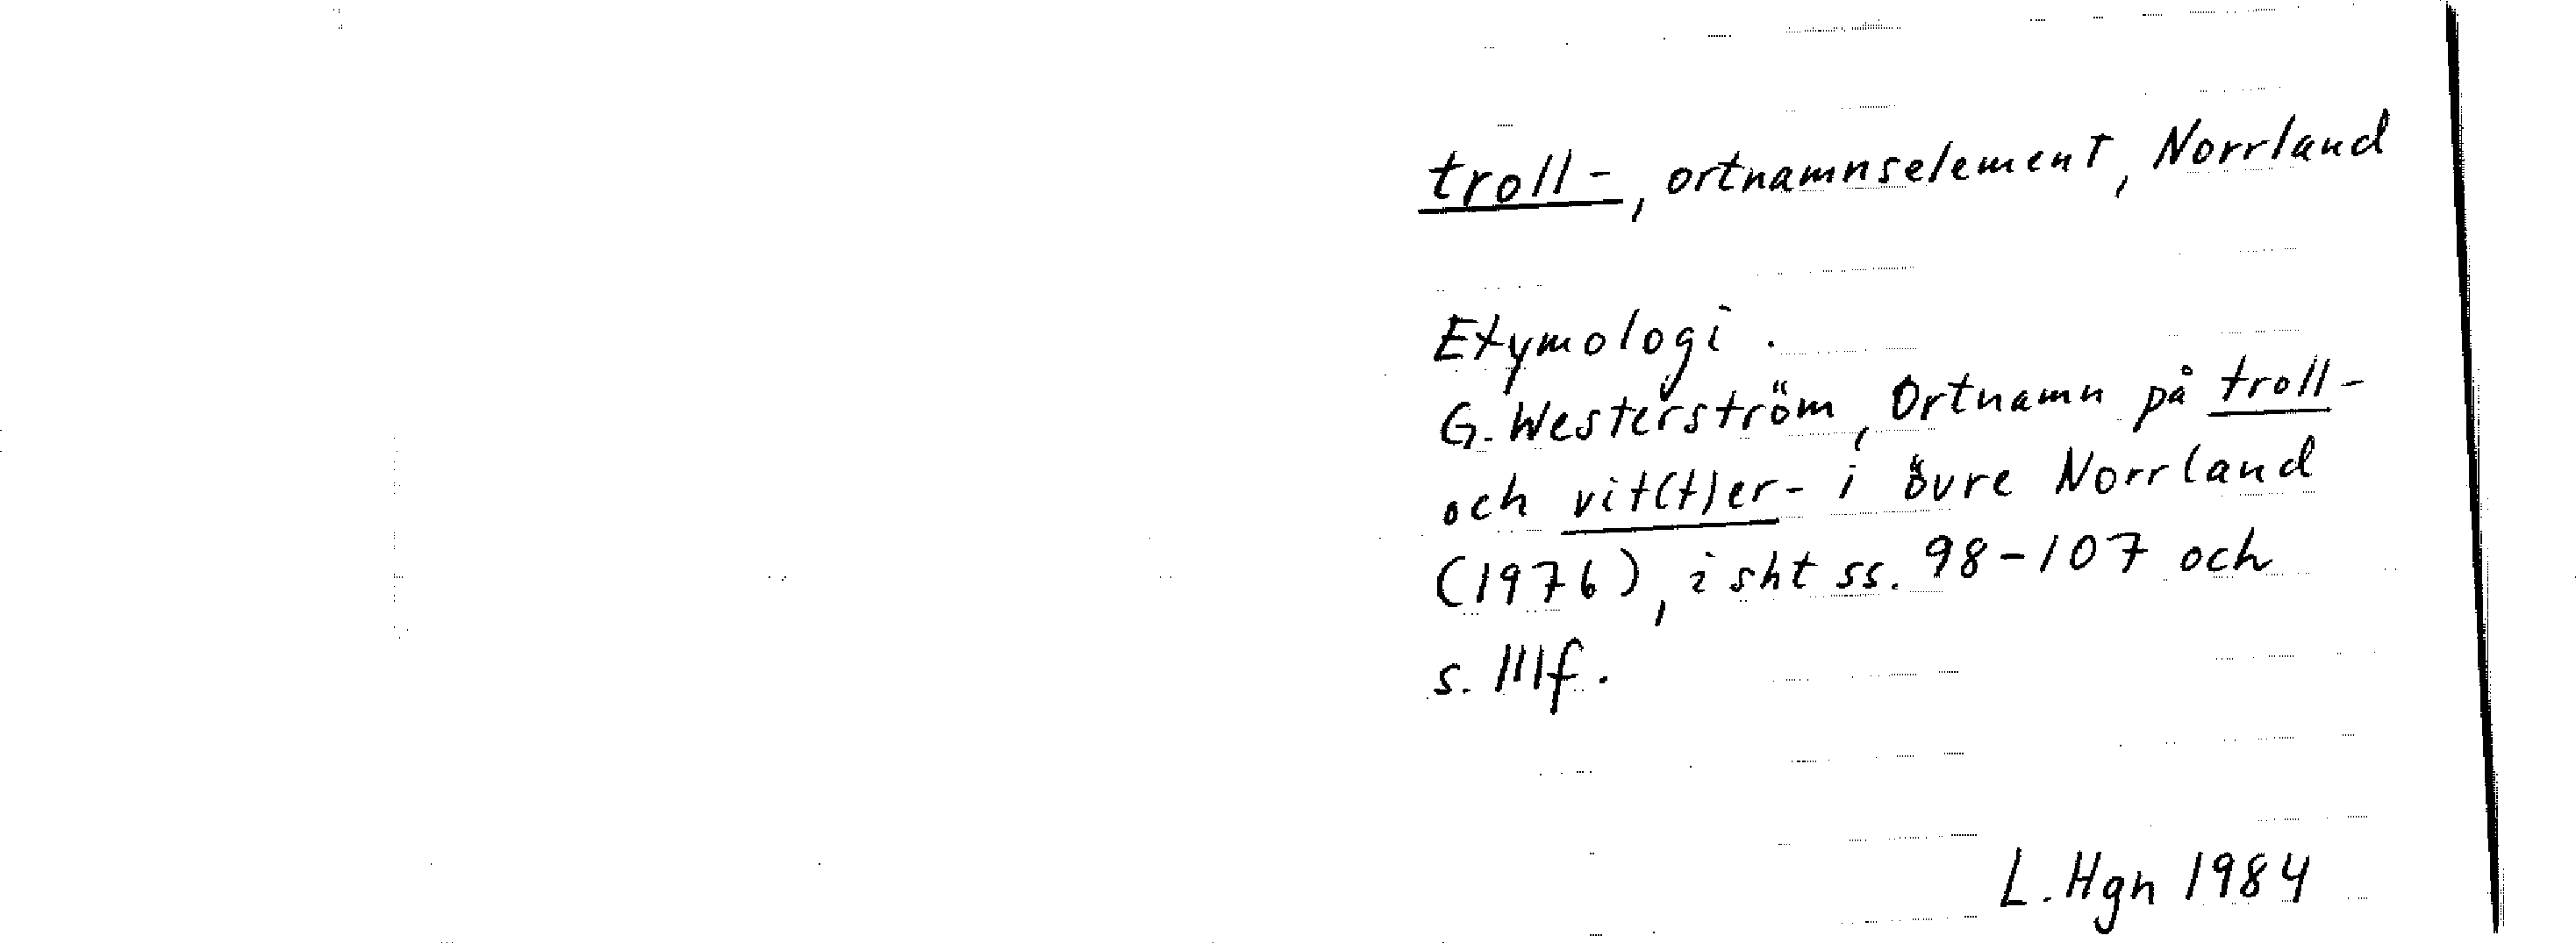 troll-, ortnamnselement, Norrland
Etymologi.
G. Westerström, Ortnamn på troll-
och vit(t)er- i övre Norrland
(1976), i sht ss. 98-107 och
s. 111f.
L. Hgn 1984